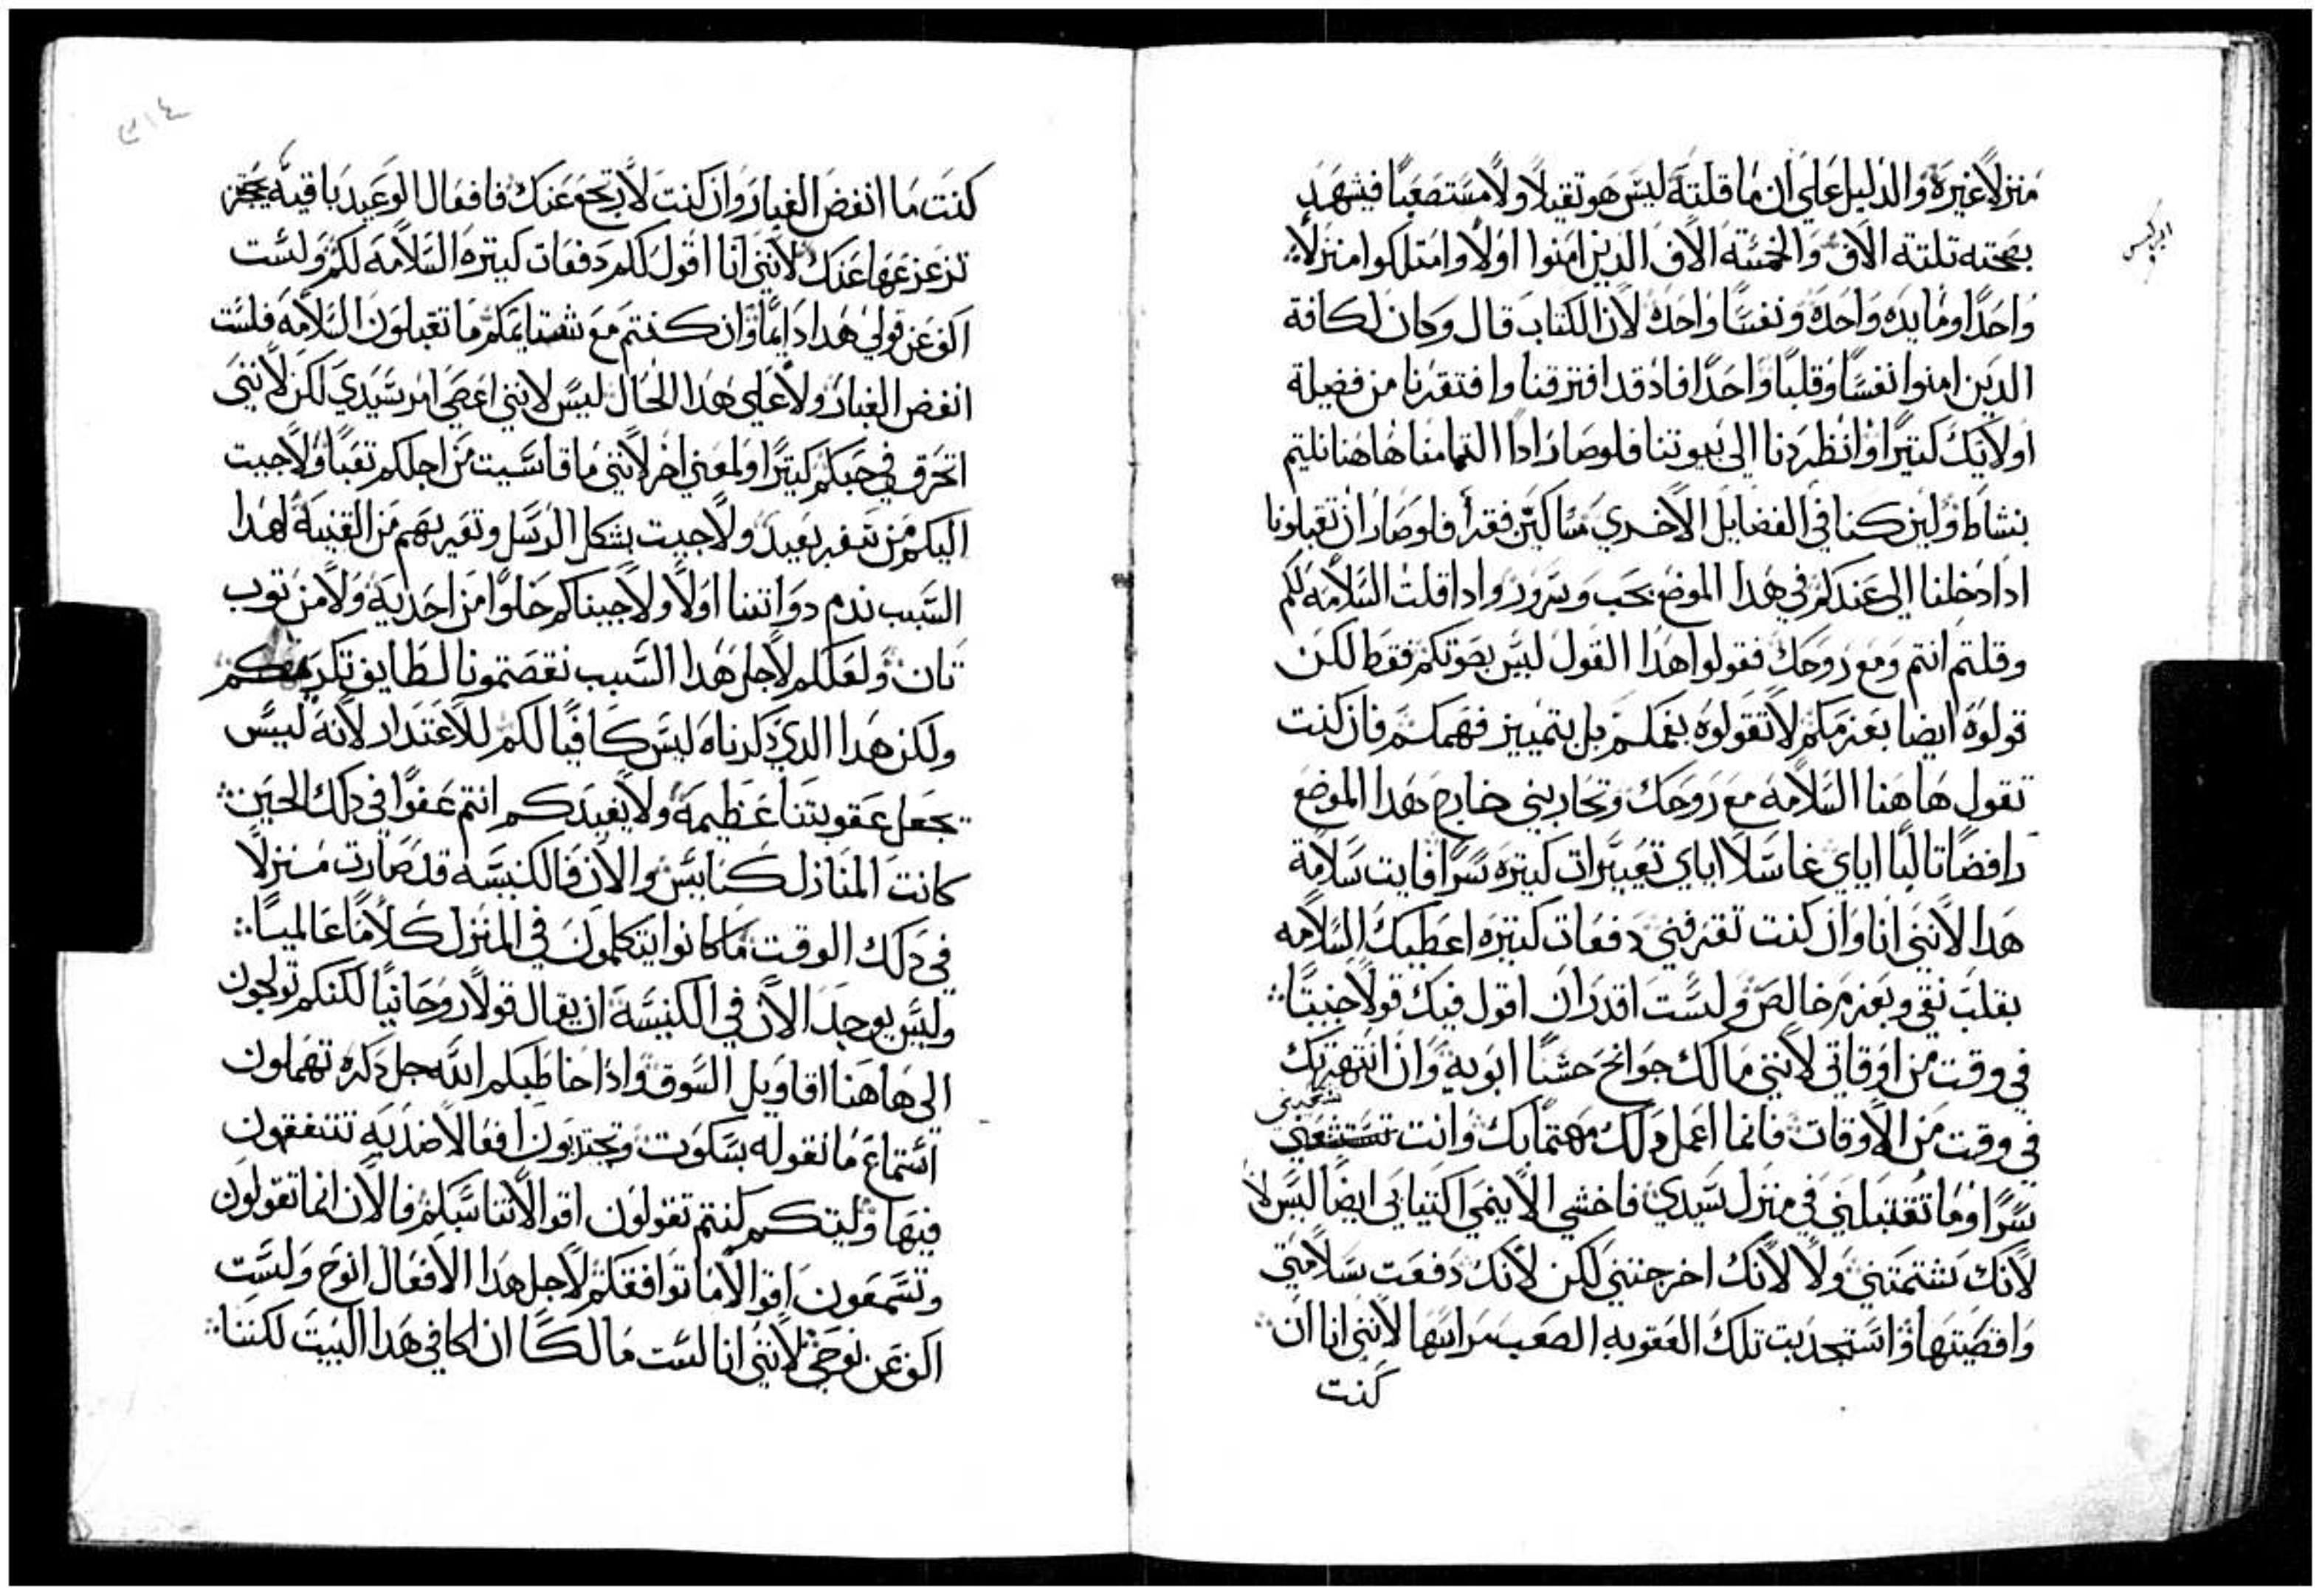 ابركسيس
منزلاً غيره والدليل على ان ما قلته ليس هو تقيلاً ولا مستصعباً فيشهد
بصحته تلتة الاف والخمسة الاف الدين امنوا اولاً وامتلكوا منزلاً
واحداً ومايده واحده ونفساً واحده لان الكتاب قال وكان لكافة
الدين امنوا نفساً وقلباً واحداً فاد قد افترقنا وافتقرنا من فضيلة
اولايك كتيراً وانظردنا الى بيوتنا فلو صار ادا التمامنا هاهنا نليتم
بنشاط ولين كنا في الفضايل الاخري مساكين فقرأ فلو صار ان تقبلونا
ادا دخلنا الى عندكم في هدا الموضع بحب وسرور وادا قلت السلامه لكم
وقلتم انتم ومع روحك فقولوا هدا القول ليس بصوتكم فقط لكن
قولوه ايضا بعزمكم لا تقولوه بفمكم بل بتمييز فهمكم فان كنت
تقول هاهنا السلامه مع روحك وتحاربني خارج هدا الموضع
رافضاً تالباً اياي غاسلاً اياي تعييرات كتيره سراً فايت سلامة
هدا لانني انا وان كنت تقرفني دفعات كتيره اعطيك السلامه
بقلب نقي وبعزم خالص ولست اقدر ان اقول فيك قولاً خبيتاً
في وقت من اوقاتي لانني مالك جوانح حشا ابوية وان انتهرتك
في وقت من الاوقات فانما اعمل دلك مهتماً بك وانت
سراً وما تقتبلني في منزل سيدي فاخشي الا ينمي اكتيابي ايضاً ليس لا
لانك شتمتني ولا لانك اخرجتني لكن لانك دفعت سلامتي
واقصيتها واستجدبت تلك العقوبه الصعب مراسها لانني انا ان
كنت
٣١٤
كنت ما انفض الغبار وان كنت لا ارتجع عنك فافعال الوعيد باقيه
تزعزعها عنك لانني انا اقول لكم دفعات كتيره السلامه لكم ولست
اكف عن قولي هدا دايماً وان كنتم مع شتايمكم ما تقبلون السلامه فلست
انفض الغبار ولا على هدا الحال ليس لانني اعصي امر سيدي لكن لانني
اتحرق في حبكم كتيراً ولمعني اخر لانني ما قاسيت من اجلكم تعباً ولا جيت
اليكم من سفر بعيد ولا جيت بشكل الرسل وتعريهم من القنية لهدا
السبب ندم دواتنا اولاً ولا جيناكم خلواً من احدية ولا من توب
تان ولعلكم لاجل هدا السبب نقصتمونا لطايق تكريمكم
ولكن هدا الدي دكرناه ليس كافياً لكم للاعتدار لانه ليس
يجعل عقوبتنا عظيمة ولا يفيدكم انتم عفواً في دلك الحين
كانت المنازل كنايس والان فالكنيسه قد صارت منزلاً
في دلك الوقت ما كانوا يتكلمون في المنزل كلاماً عالمياً
وليس يوجد الان في الكنيسة ان يقال قولاً روحانياً لكنكم تولجون
الى هاهنا اقاويل السوق وادا خاطبكم الله جل دكره تهملون
استماع ما نقوله بسكوت وتجتدبون افعالا ضديه تتنفقون
فيها وليتكم كنتم تقولون اقوالا تناسبكم فالان انما تقولون
وتسمعون اقوالا ما توافقكم لاجل هدا الافعال انوح ولست
اكف عن نوحي لانني انا لست مالكاً انكا في هدا البيت لكننا